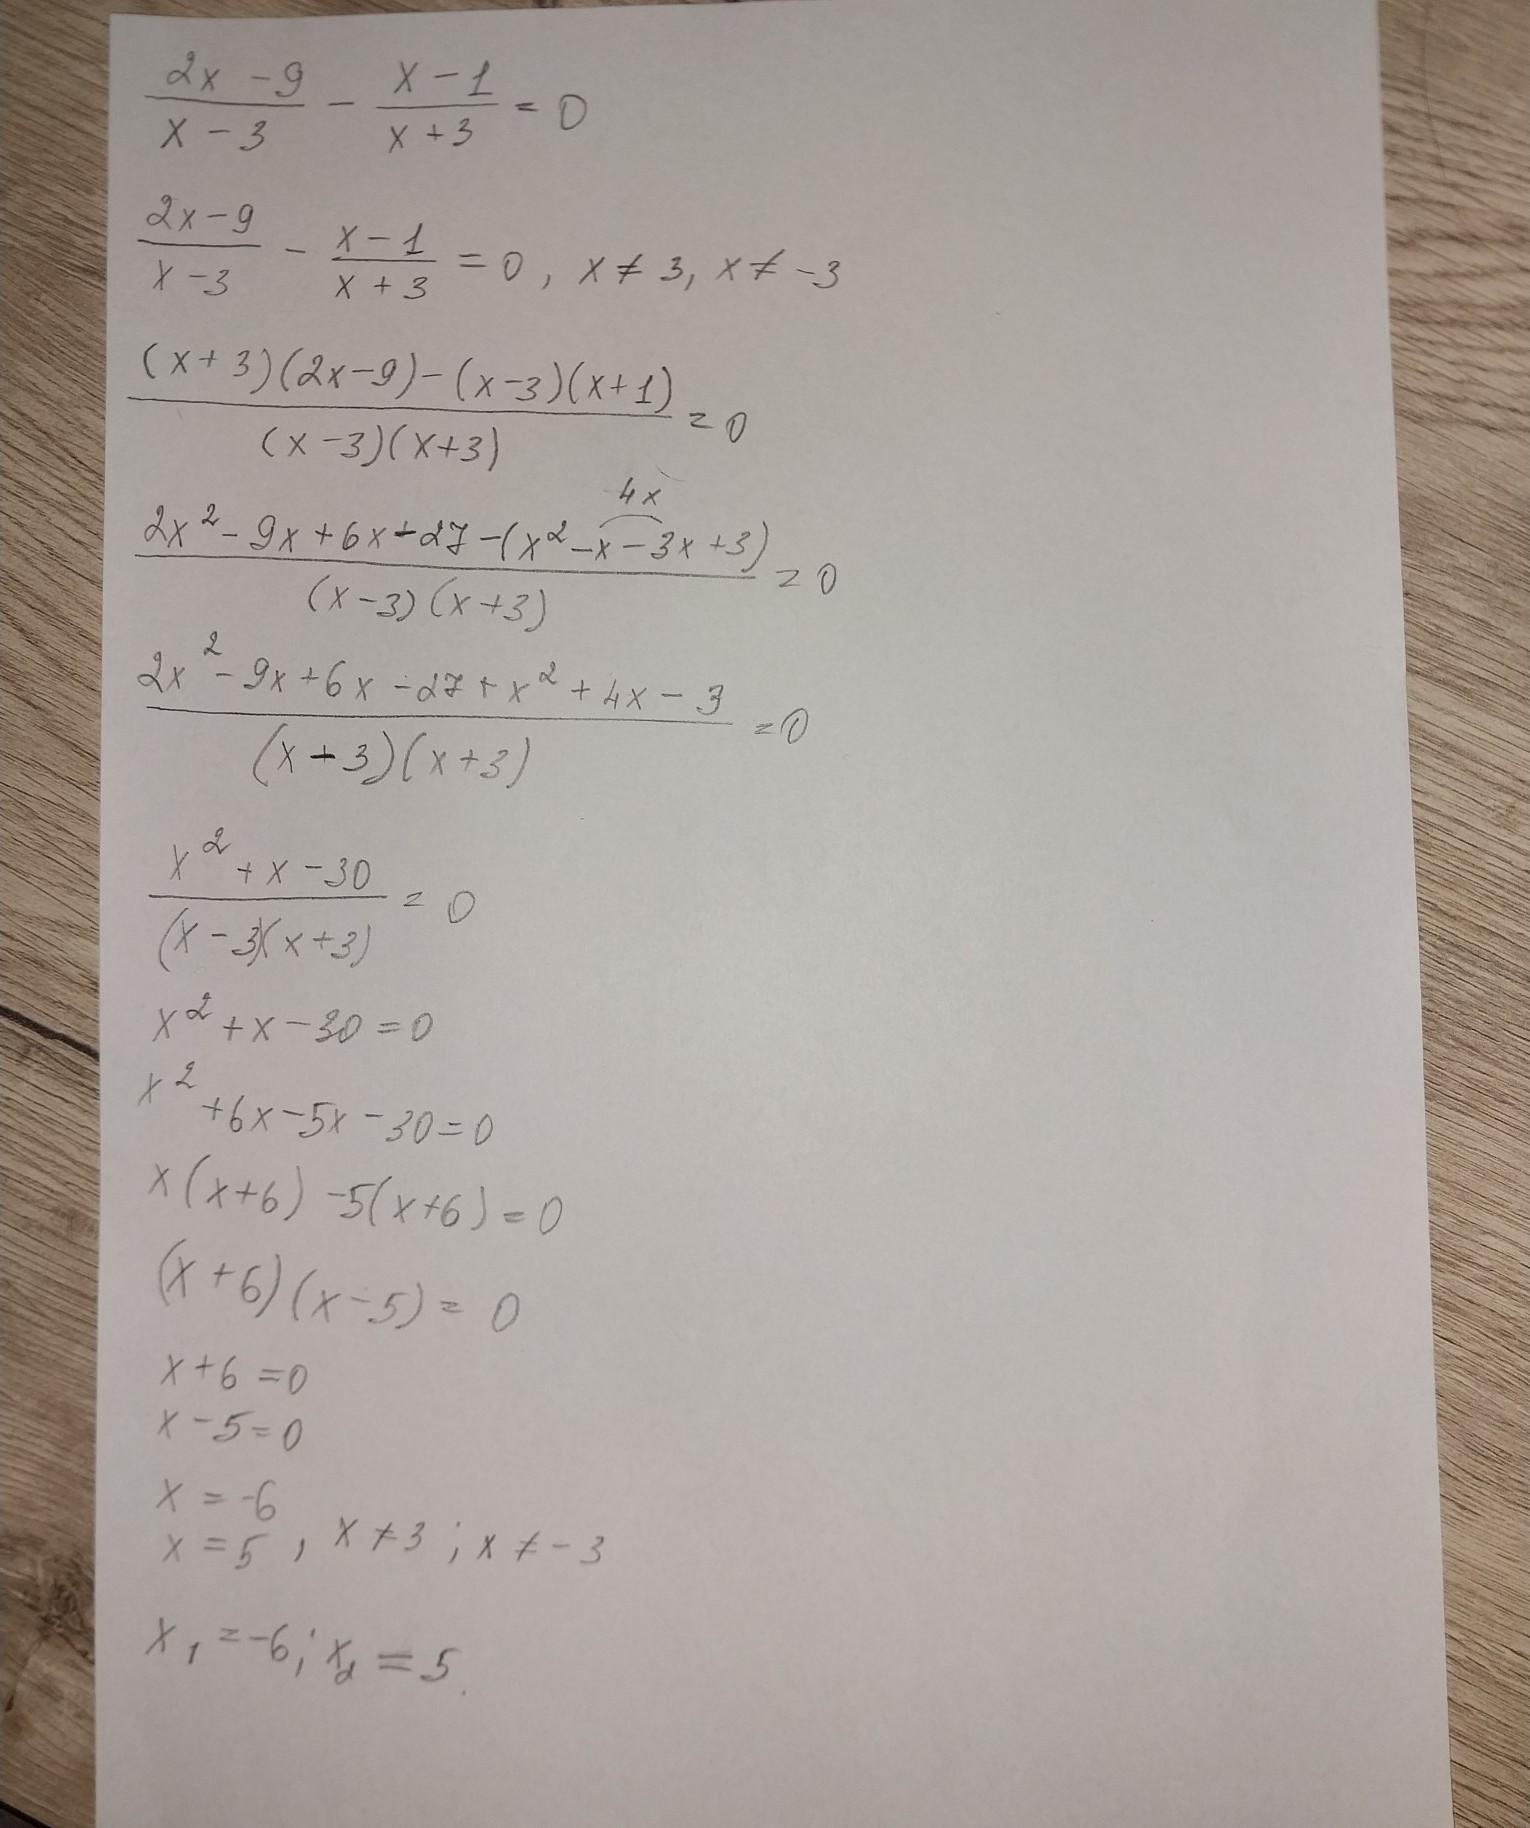 (2x - 9)/(x - 3) - (x - 1)/(x + 3) = 0
(2x - 9)/(x - 3) - (x - 1)/(x + 3) = 0, x ≠ 3, x ≠ -3
((x + 3)(2x - 9) - (x - 3)(x + 1))/((x - 3)(x + 3)) = 0
4x
(2x² - 9x + 6x - 27 - (x² - x - 3x + 3))/((x - 3)(x + 3)) = 0
(2x² - 9x + 6x - 27 + x² + 4x - 3)/((x - 3)(x + 3)) = 0
(x² + x - 30)/((x - 3)(x + 3)) = 0
x² + x - 30 = 0
x² + 6x - 5x - 30 = 0
x(x + 6) - 5(x + 6) = 0
(x + 6)(x - 5) = 0
x + 6 = 0
x - 5 = 0
x = -6
x = 5, x ≠ 3; x ≠ -3
x₁ = -6; x₂ = 5.